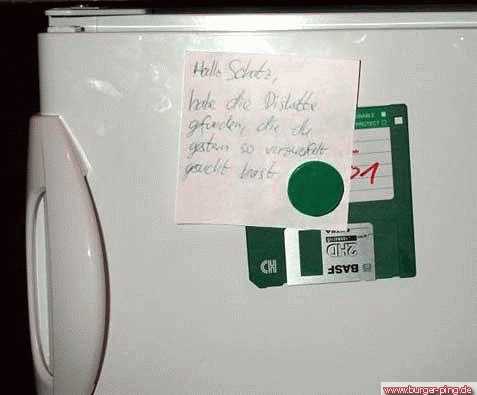 Hallo Schatz,
habe die Diskette
gefunden, die du
gestern so verzweifelt
gesucht hast
PROTECT
01
BASF
2HD
EXTRA
HD
www.burger-ping.de